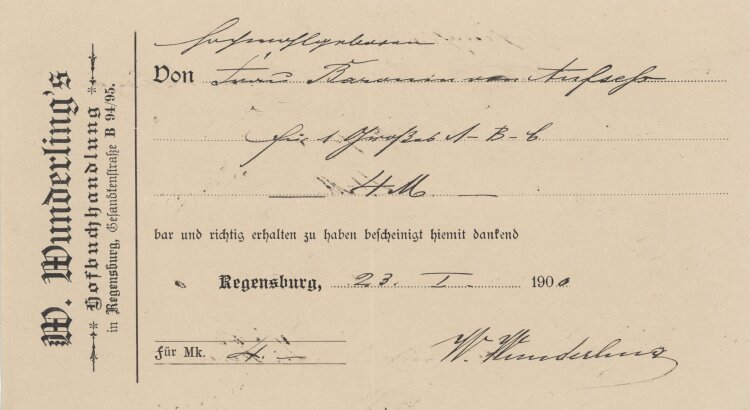 W. Wunderling's
Hofbuchhandlung
in Regensburg, Gesandtenstraße B 94/95.
Hochwohlgeboren
Von Frau Baronin von Aufseß
für 1 Großes A-B-C
4 M
bar und richtig erhalten zu haben bescheinigt hiemit dankend
Regensburg, 23. I. 1900
für Mk. 4.—
W. Wunderling